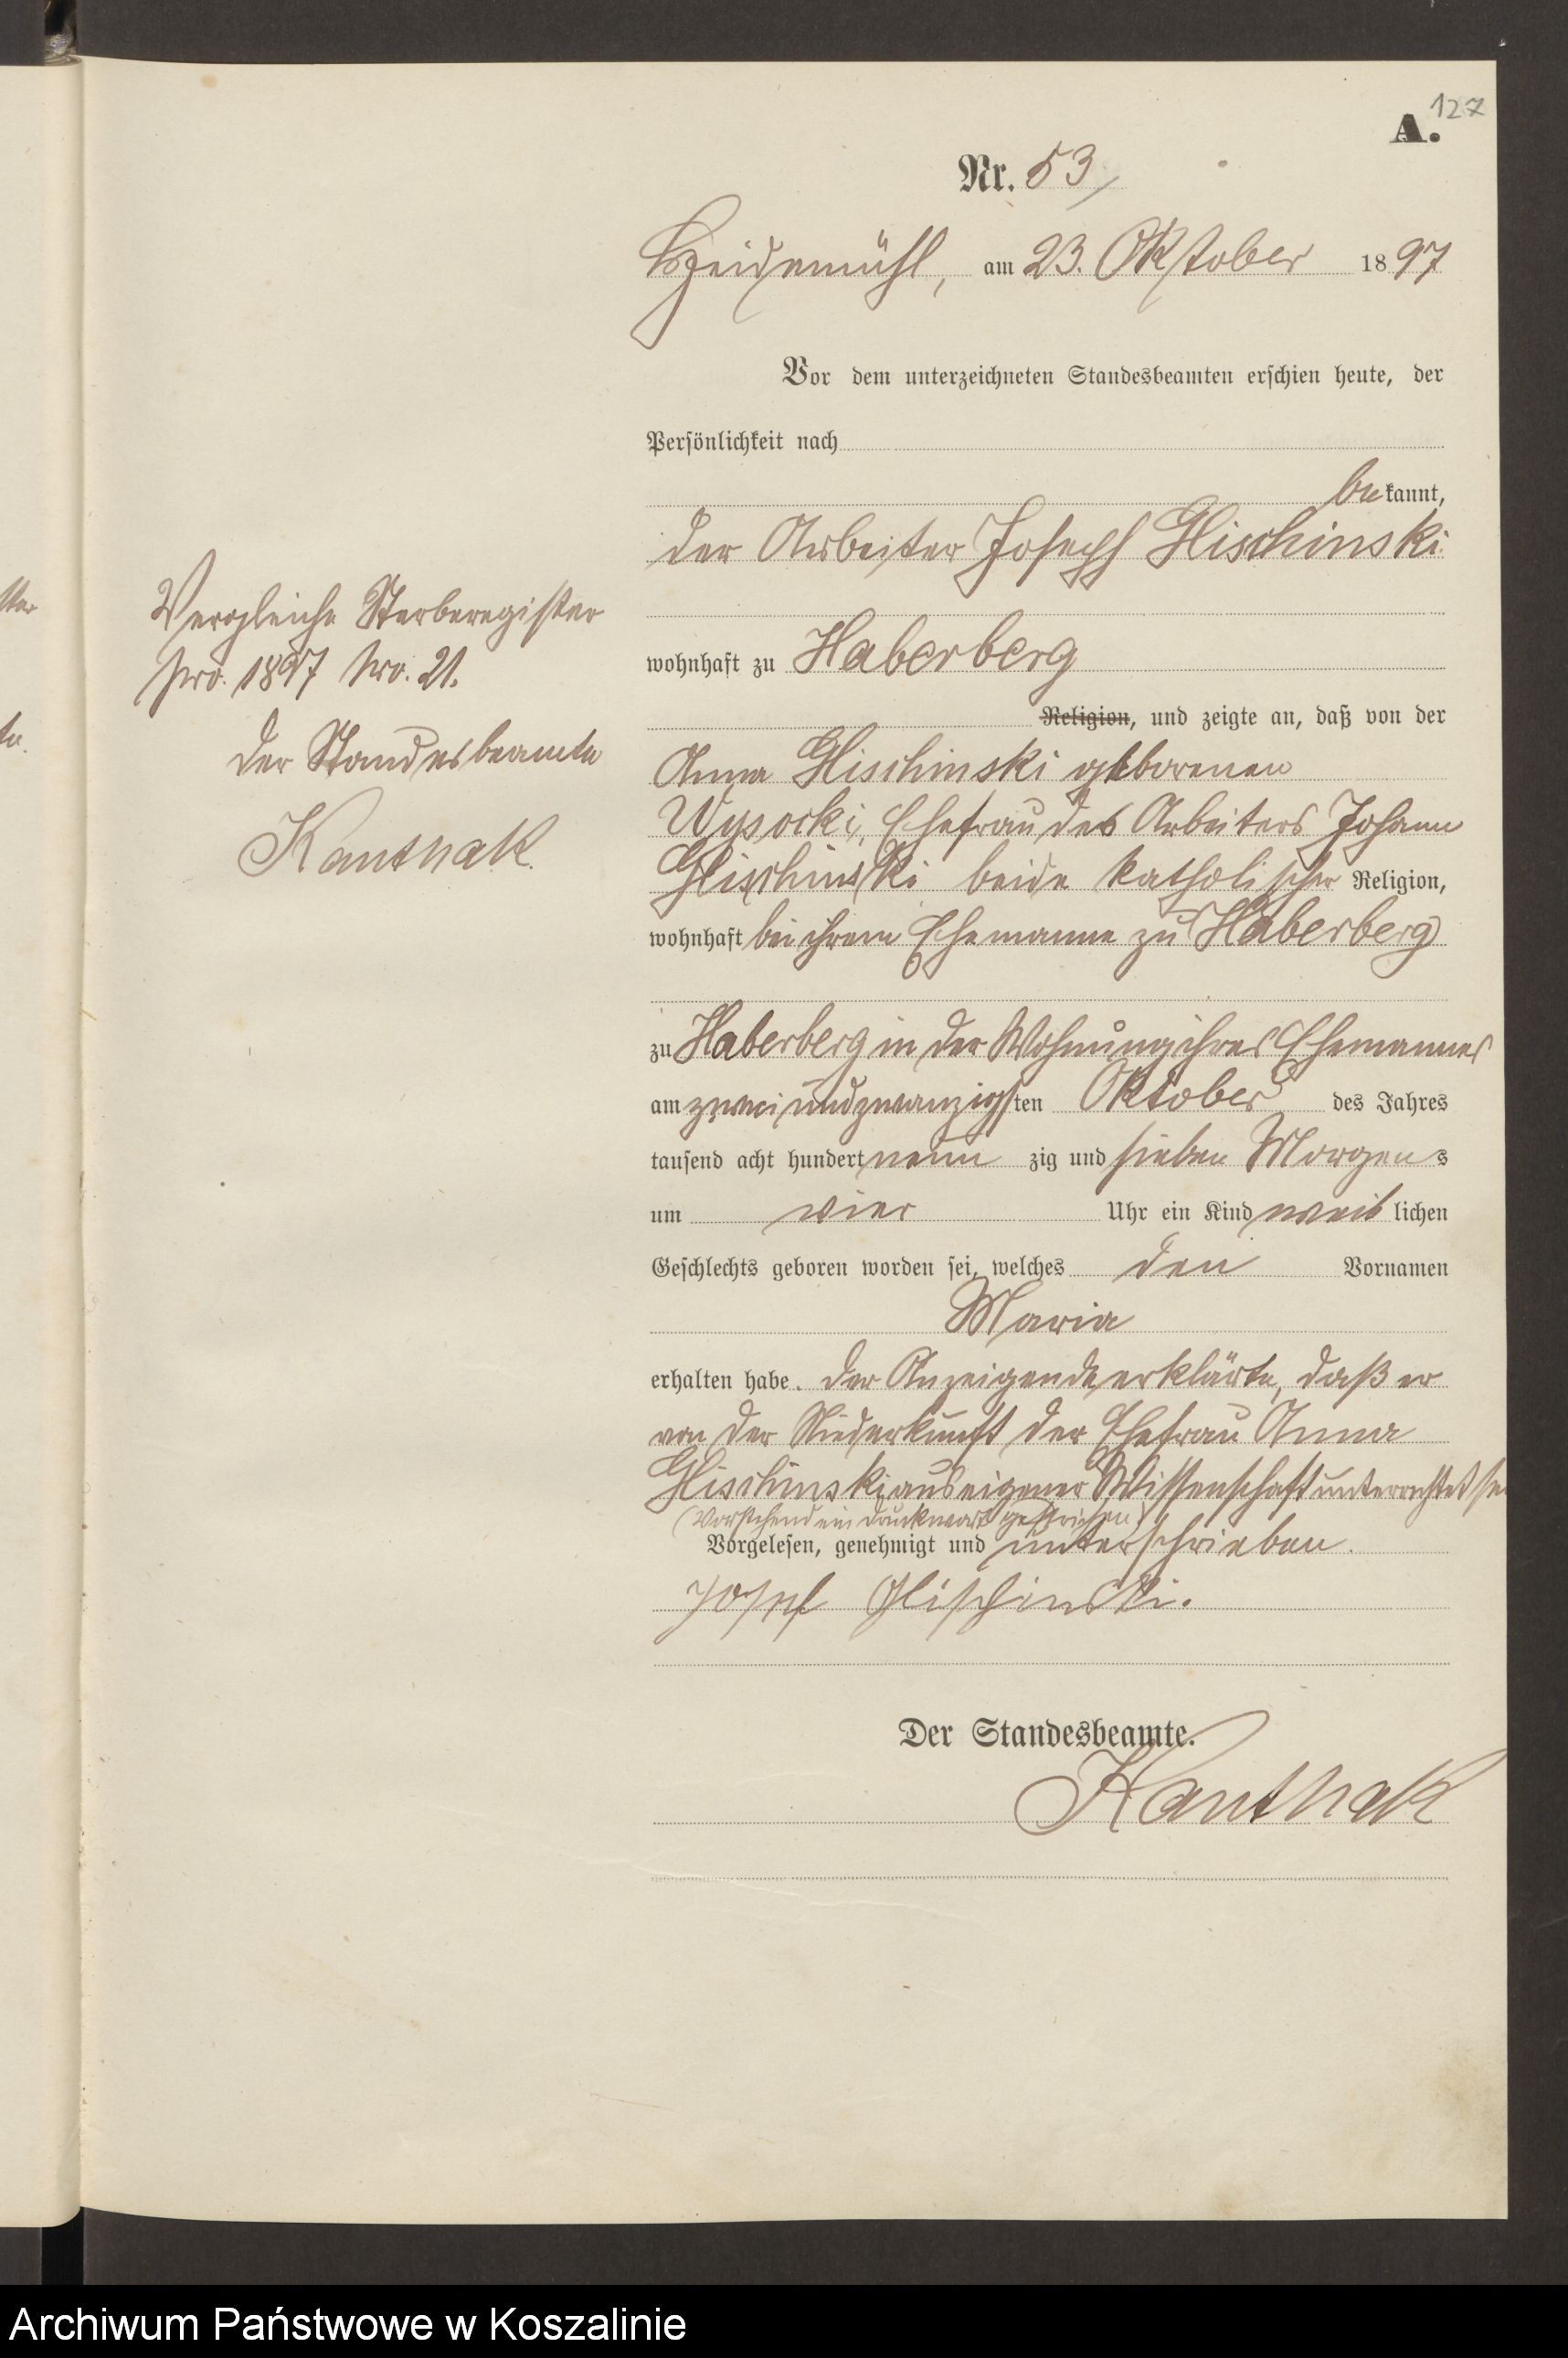 127
A.
Nr. 53
Heidemühl, am 23. Oktober 1897
Vor dem unterzeichneten Standesbeamten erschien heute, der
Persönlichkeit nach
bekannt,
der Arbeiter Joseph Glischinski
wohnhaft zu Haberberg
Religion, und zeigte an, daß von der
Anna Glischinski geborenen
Wysocki, Ehefrau des Arbeiters Johann
Glischinski beide katholischer Religion,
wohnhaft bei ihrem Ehemanne zu Haberberg
zu Haberberg in der Wohnung ihres Ehemannes
am zwei und zwanzigsten Oktober des Jahres
tausend acht hundert neun zig und sieben Morgens
um vier Uhr ein Kind weiblichen
Geschlechts geboren worden sei, welches den Vornamen
Maria
erhalten habe. Der Anzeigende erklärte, daß er
von der Niederkunft der Ehefrau Anna
Glischinski aus eigener Wissenschaft unterrichtet
(Vorstehend ein Druckwort gestrichen)
Vorgelesen, genehmigt und unterschrieben.
Josef Glischinski.
Der Standesbeamte.
Kanthak
Vergleiche Sterberegister
pro. 1897 Nro. 21.
Der Standesbeamte
Kanthak.
Archiwum Państwowe w Koszalinie